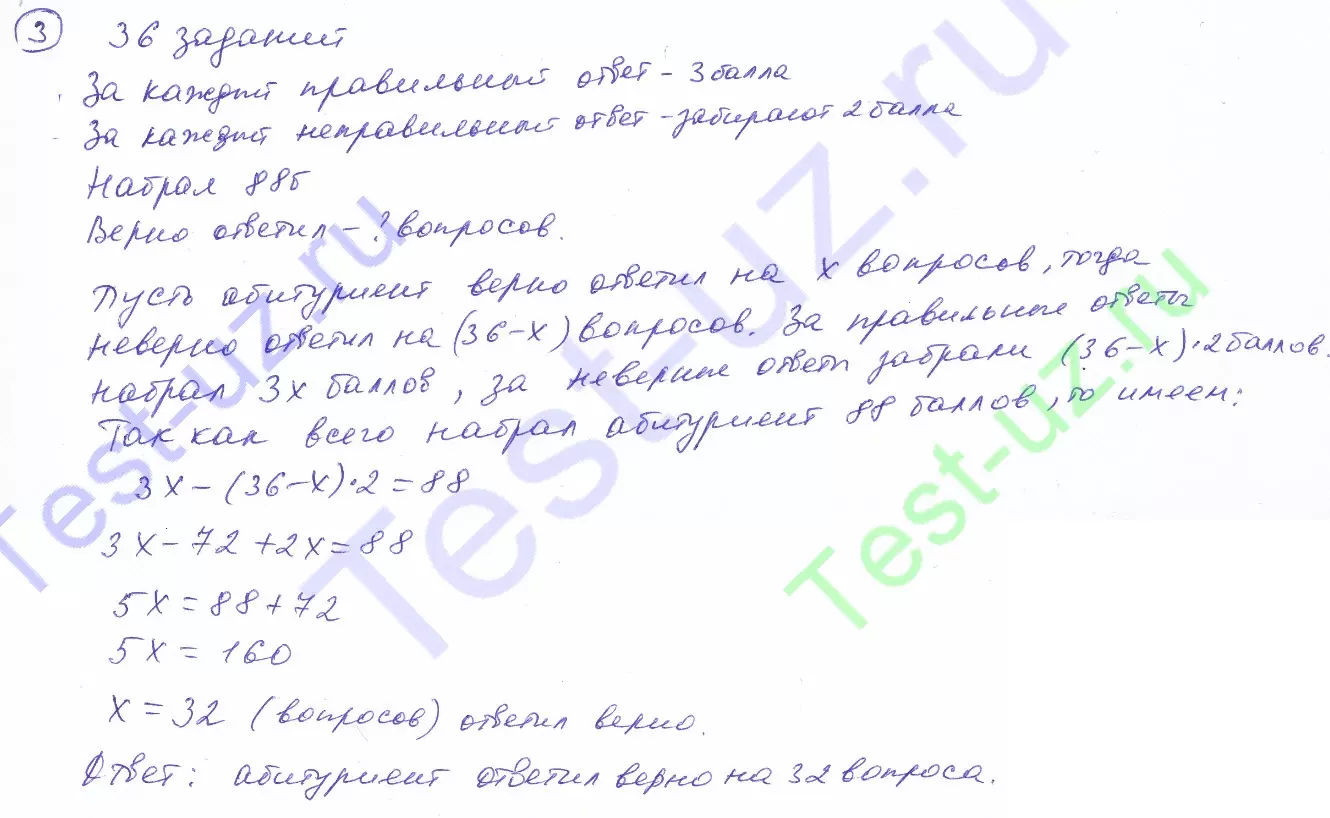 3 36 заданий
За каждый правильный ответ - 3 балла
За каждый неправильный ответ - забирают 2 балла
Набрал 88б
Верно ответил - ? вопросов.
Пусть абитуриент верно ответил на x вопросов, тогда
неверно ответил на (36-x) вопросов. За правильные ответы
набрал 3x баллов, за неверные ответы забрали (36-x)·2 баллов.
Так как всего набрал абитуриент 88 баллов, то имеем:
3x-(36-x)·2=88
3x-72+2x=88
5x=88+72
5x=160
x=32 (вопросов) ответил верно.
Ответ: абитуриент ответил верно на 32 вопроса.
Test-uz.ru
Test-uz.ru
Test-uz.ru